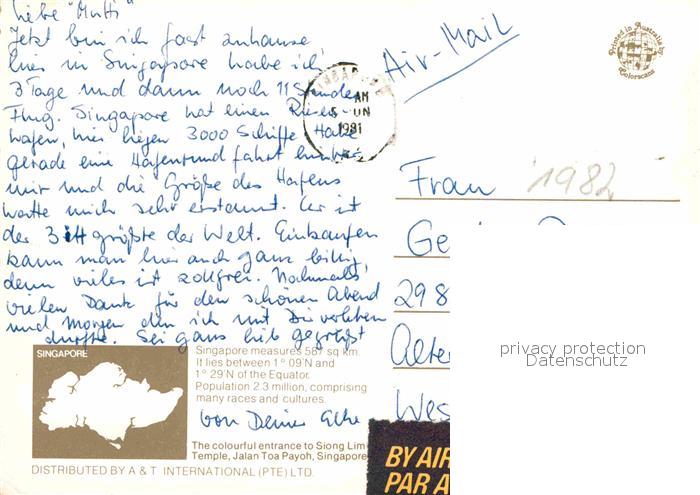 Liebe "Mutti"
Jetzt bin ich fast zuhause
hier in Singapore habe ich
3 Tage und dann noch 11 Stunden
Flug. Singapore hat einen Riesen-
hafen, hier liegen 3000 Schiffe. Habe
gerade eine Hafenrundfahrt hinter
mir und die Größe des Hafens
hatte mich sehr erstaunt. Er ist
der 3 größte der Welt. Einkaufen
kann man hier auch ganz billig,
denn vieles ist zollfrei. Nochmals
vielen Dank für den schönen Abend
und Morgen den ich mit Dir verleben
durfte. Sei ganz lieb gegrüßt
von Deiner
Air-Mail
AM
5 UN
1981
Printed in Australia by
Colorscans
Frau 1982
Ge
298
Alte
Wes
privacy protection
Datenschutz
SINGAPORE
Singapore measures 587 sq km.
It lies between 1° 09'N and
1° 29'N of the Equator.
Population 2.3 million, comprising
many races and cultures.
The colourful entrance to Siong Lim
Temple, Jalan Toa Payoh, Singapore
DISTRIBUTED BY A & T INTERNATIONAL (PTE) LTD.
BY AIR
PAR A